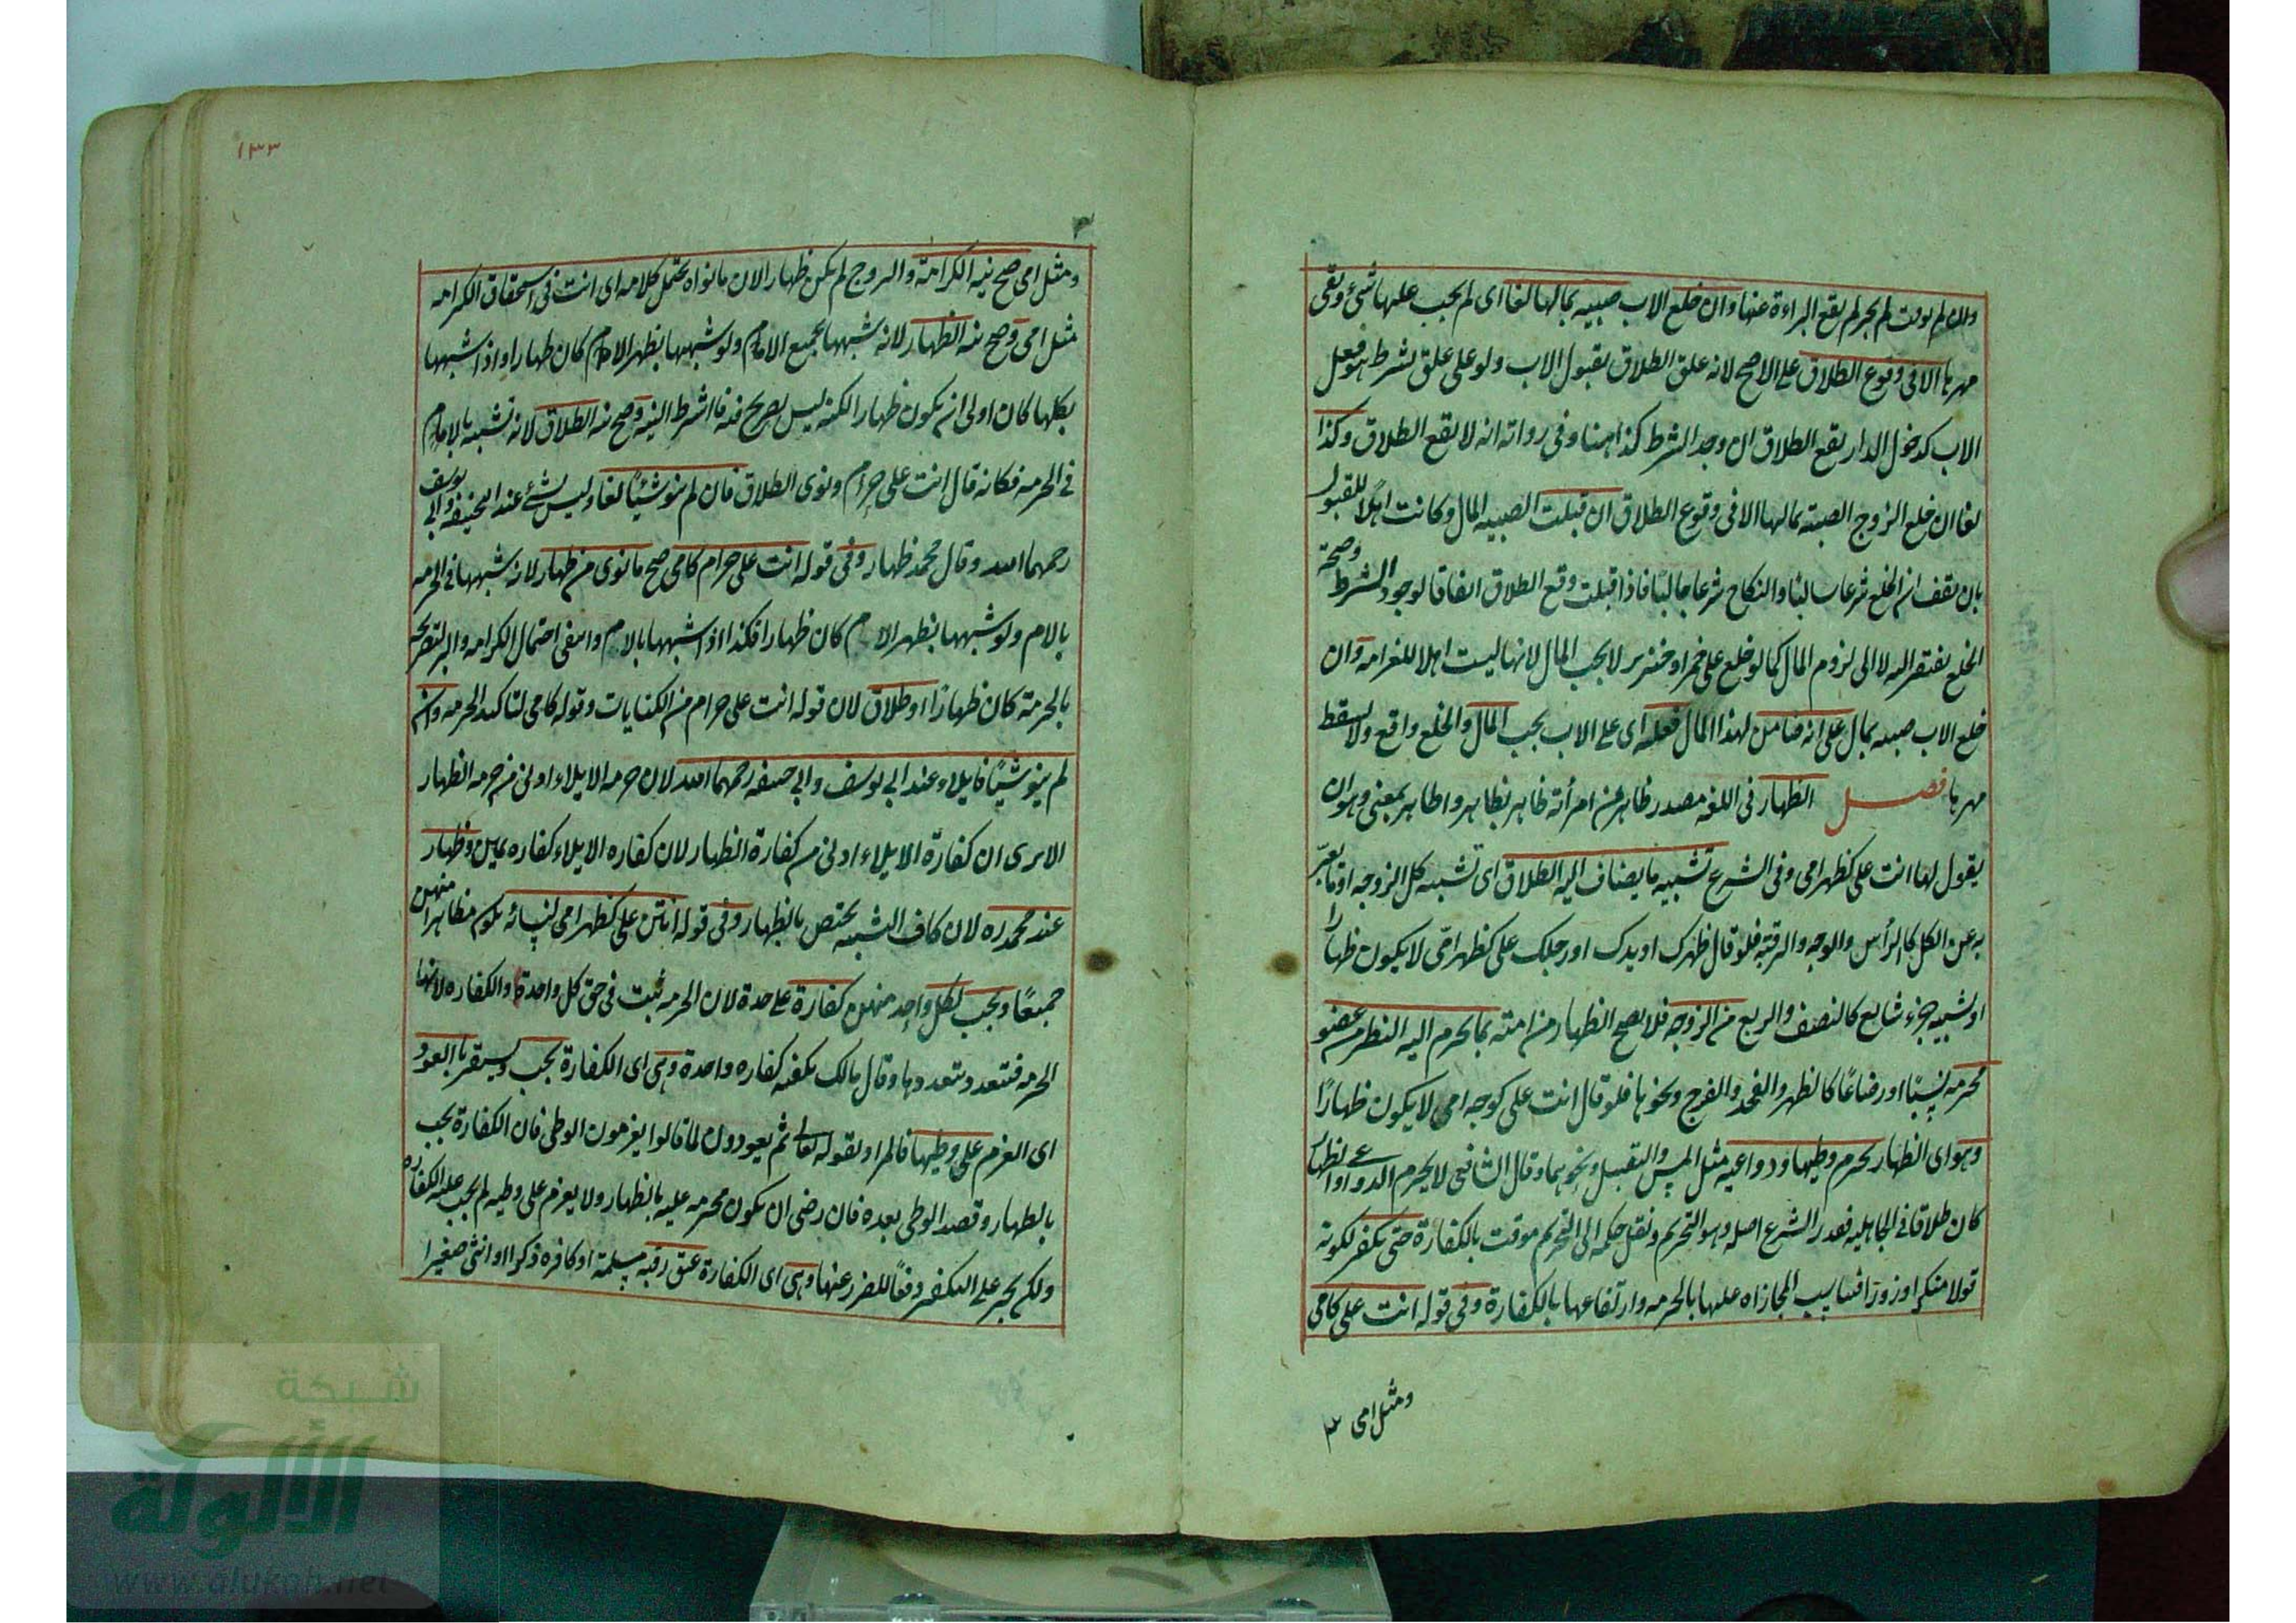 وان لم يوقت لم يجز لم يقع البراءة عنها وان خلع الاب صبيه بمالها لغا اى لم يجب عليها شئ وبقى
مهرها الا فى وقوع الطلاق على الاصح لانه علق الطلاق بقبول الاب ولو على علق بشرط هو فعل
الاب كدخول الدار يقع الطلاق ان وجد الشرط كذا هنا وفى رواته انه لا يقع الطلاق وكذا
لغا ان خلع الزوج الصبيه بمالها الا فى وقوع الطلاق ان قبلت الصبيه المال وكانت اهلا للقبول
بان يقف ان الخلع شرعا سالبا والنكاح شرعا جالبا فاذا قبلت وقع الطلاق اتفاقا لوجود الشرط وصحة
الخلع يفتقر اليه لا الى لزوم المال كما لو خلع على خمر او خنزير لا يجب المال لانها ليست اهلا للغرامه وان
خلع الاب صبيه بمال على انه ضامن لهذا المال فعليه اى على الاب يجب المال والخلع واقع ولا يسقط
مهرها فصل الظهار فى اللغه مصدر ظاهر من امرأته ظاهر يظاهر واظاهر بمعنى وهو ان
يقول لها انت على كظهر امى وفى الشرع تشبيه ما يضاف اليه الطلاق اى تشبيه كل الزوجه او ما يعبر
به عن الكل كالرأس والوجه والرقبة فلو قال ظهرك او يدك او رجلك على كظهر امّى لا يكون ظهارا
او تشبيه جزء شايع كالنصف والربع من الزوجه فلا يصح الظهار من امته بما يحرم اليه النظر من عضو
محرمه نسبًا او رضاعًا كالظهر والفخذ والفرج ونحوها فلو قال انت على كوجه امى لا يكون ظهارًا
وهو اى الظهار يحرم وطيها ودواعيه مثل المس والتقبيل ونحوهما وقال الشافعى لا يحرم الدواعى والظهار
كان طلاقا فى الجاهليه فقدر الشرع اصله وهو التحريم ونقل حكمه الى التحريم موقت بالكفارة حتى يكفر لكونه
قولا منكرا وزورًا فناسب المجازاه عليها بالحرمه وارتفاعها بالكفارة وفى قوله انت على كامى
ومثل امى ٣
١٣٣
٣
ومثل امى صح نيه الكرامة والبر وج لم يكن ظهارا لان ما نواه يحتمل كلامه اى انت فى استحقاق الكرامه
مثل امى وصح نيه الظهار لانه شبهها بجميع الام ولو شبهها بظهر الام كان ظهارا واذا شبهها
بكلها كان اولى ان يكون ظهارا لكنه ليس بصريح فيه فاشترط النيه وصح نيه الطلاق لانه تشبيه بالام
فى الحرمه فكانه قال انت على حرام ونوى الطلاق فان لم ينو شيئًا لغا وليس بشئ عند ابى حنيفه وابى يوسف
رحمهما الله وقال محمد ظهار وفى قوله انت على حرام كامى صح ما نوى من ظهار لانه شبهها فى الحرمه
بالام ولو شبهها بظهر الام كان ظهارا فكذا اذا شبهها بالام وانتفى احتمال الكرامه والبر لتصريحه
بالحرمة كان ظهارًا او طلاق لان قوله انت على حرام من الكنايات وقوله كامى لتاكيد الحرمه وان
لم ينو شيئًا فايلاء عند ابى يوسف وابى حنيفه رحمهما الله لان حرمه الايلاء اولى من حرمه الظهار
الا يرى ان كفارة الايلاء اولى من كفارة الظهار لان كفاره الايلاء كفاره يمين وظهار
عند محمد ره لان كاف التشبيه يختص بالظهار وفى قوله انتن على كظهر امى لنسائه يكون مظاهرا منهن
جميعًا ويجب لكل واحد منهن كفارة على حدة لان الحرمه ثبت فى حق كل واحدة والكفاره لانها
الحرمه فتتعدد بتعددها وقال مالك يكفيه كفاره واحدة وهى اى الكفارة يجب ويستقر بالعود
اى العزم على وطيها فالمراد بقوله تعالى ثم يعودون لما قالوا يعزمون الوطى فان الكفارة يجب
بالظهار وقصد الوطى بعده فان رضى ان يكون محرمه عليه بالظهار ولا يعزم على وطيه لم يجب عليه الكفاره
ولكن يجبر على التكفير دفعًا للضرر عنها وهى اى الكفارة عتق رقبه مسلمة او كافره ذكرا او انثى صغيرا
شبكة
الألوكة
www.alukah.net